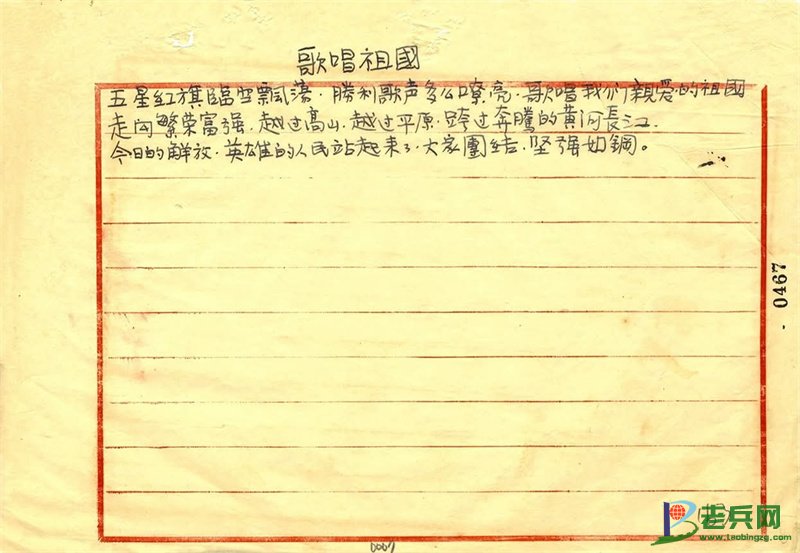 歌唱祖國
五星红旗臨空飄蕩．勝利歌声多么嘹亮．歌唱我们親爱的祖國
走向繁荣富强．越过高山．越过平原．跨过奔騰的黄河長江．
今日的解放．英雄的人民站起来了．大家團结．坚强如鋼。
0467
老兵网
www.laobingzg.com